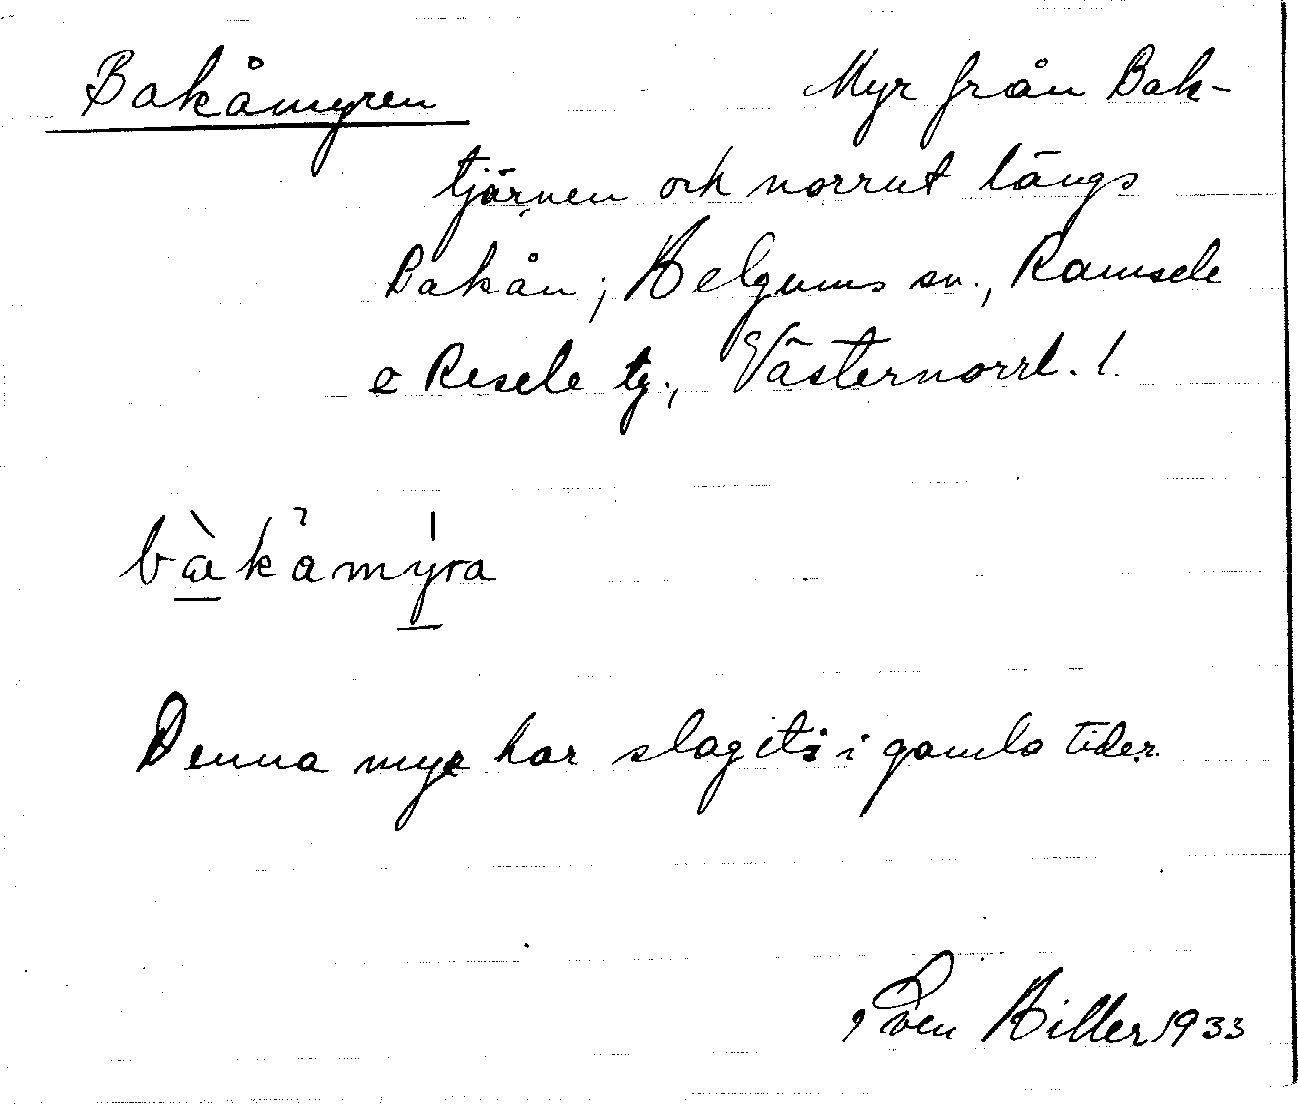 Bakåmyren Myr från Bak-
tjärnen och norrut längs
Bakån, Helgums sn., Ramsele
o Resele tg., Västernorrl. l.
bàkåmyra
Denna myr har slagits i gamla tider.
Sven Hiller 1933